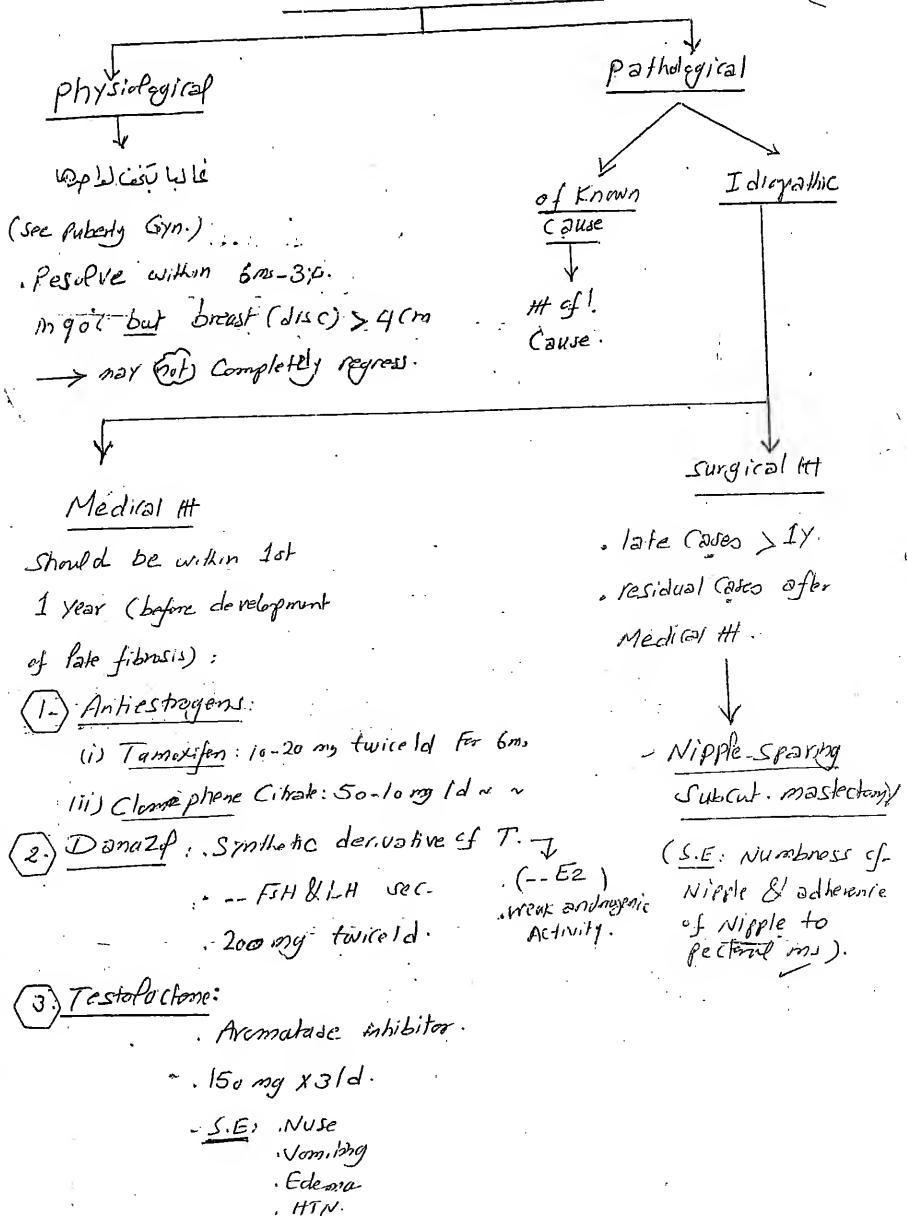 Physiological
غالبا بتخف لوحدها
(See Puberty Gyn.)
. Resolve within 6ms-3y.
in 90% but breast (disc) > 4cm
→ may not Completely regress.
Pathological
of Known
Cause
ttt of !
Cause.
Idiopathic
Medical ttt
Should be within 1st
1 year (before development
of late fibrosis) :
1- Antiestrogens:
(i) Tamoxifen : 10-20 mg twice/d For 6ms
(ii) Clomiphene Citrate: 50-10 mg /d ~ ~
2. Danazol : . Synthetic derivative of T. →
. -- FSH & LH sec.
. 200 mg twice/d.
. (-- E2)
. Weak androgenic
Activity.
3. Testolactone:
. Aromatase inhibitor.
. 150 mg x3/d.
- S.E: . Nuse
. Vomiting
. Edema
. HTN.
Surgical ttt
. late Cases > 1y.
. residual Cases after
Medical ttt.
- Nipple-Sparing
Subcut. mastectomy
(S.E: Numbness of
Nipple & adherence
of Nipple to
pectoral ms).